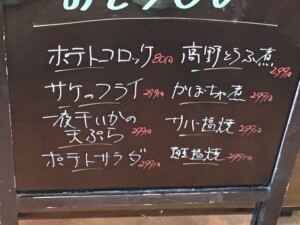 ポテトコロッケ 80円
サケのフライ 299円
一夜干しいかの
天ぷら 299円
ポテトサラダ 299円
高野とうふ煮
299円
かぼちゃ煮 299円
サバ塩焼 299円
塩焼 299円